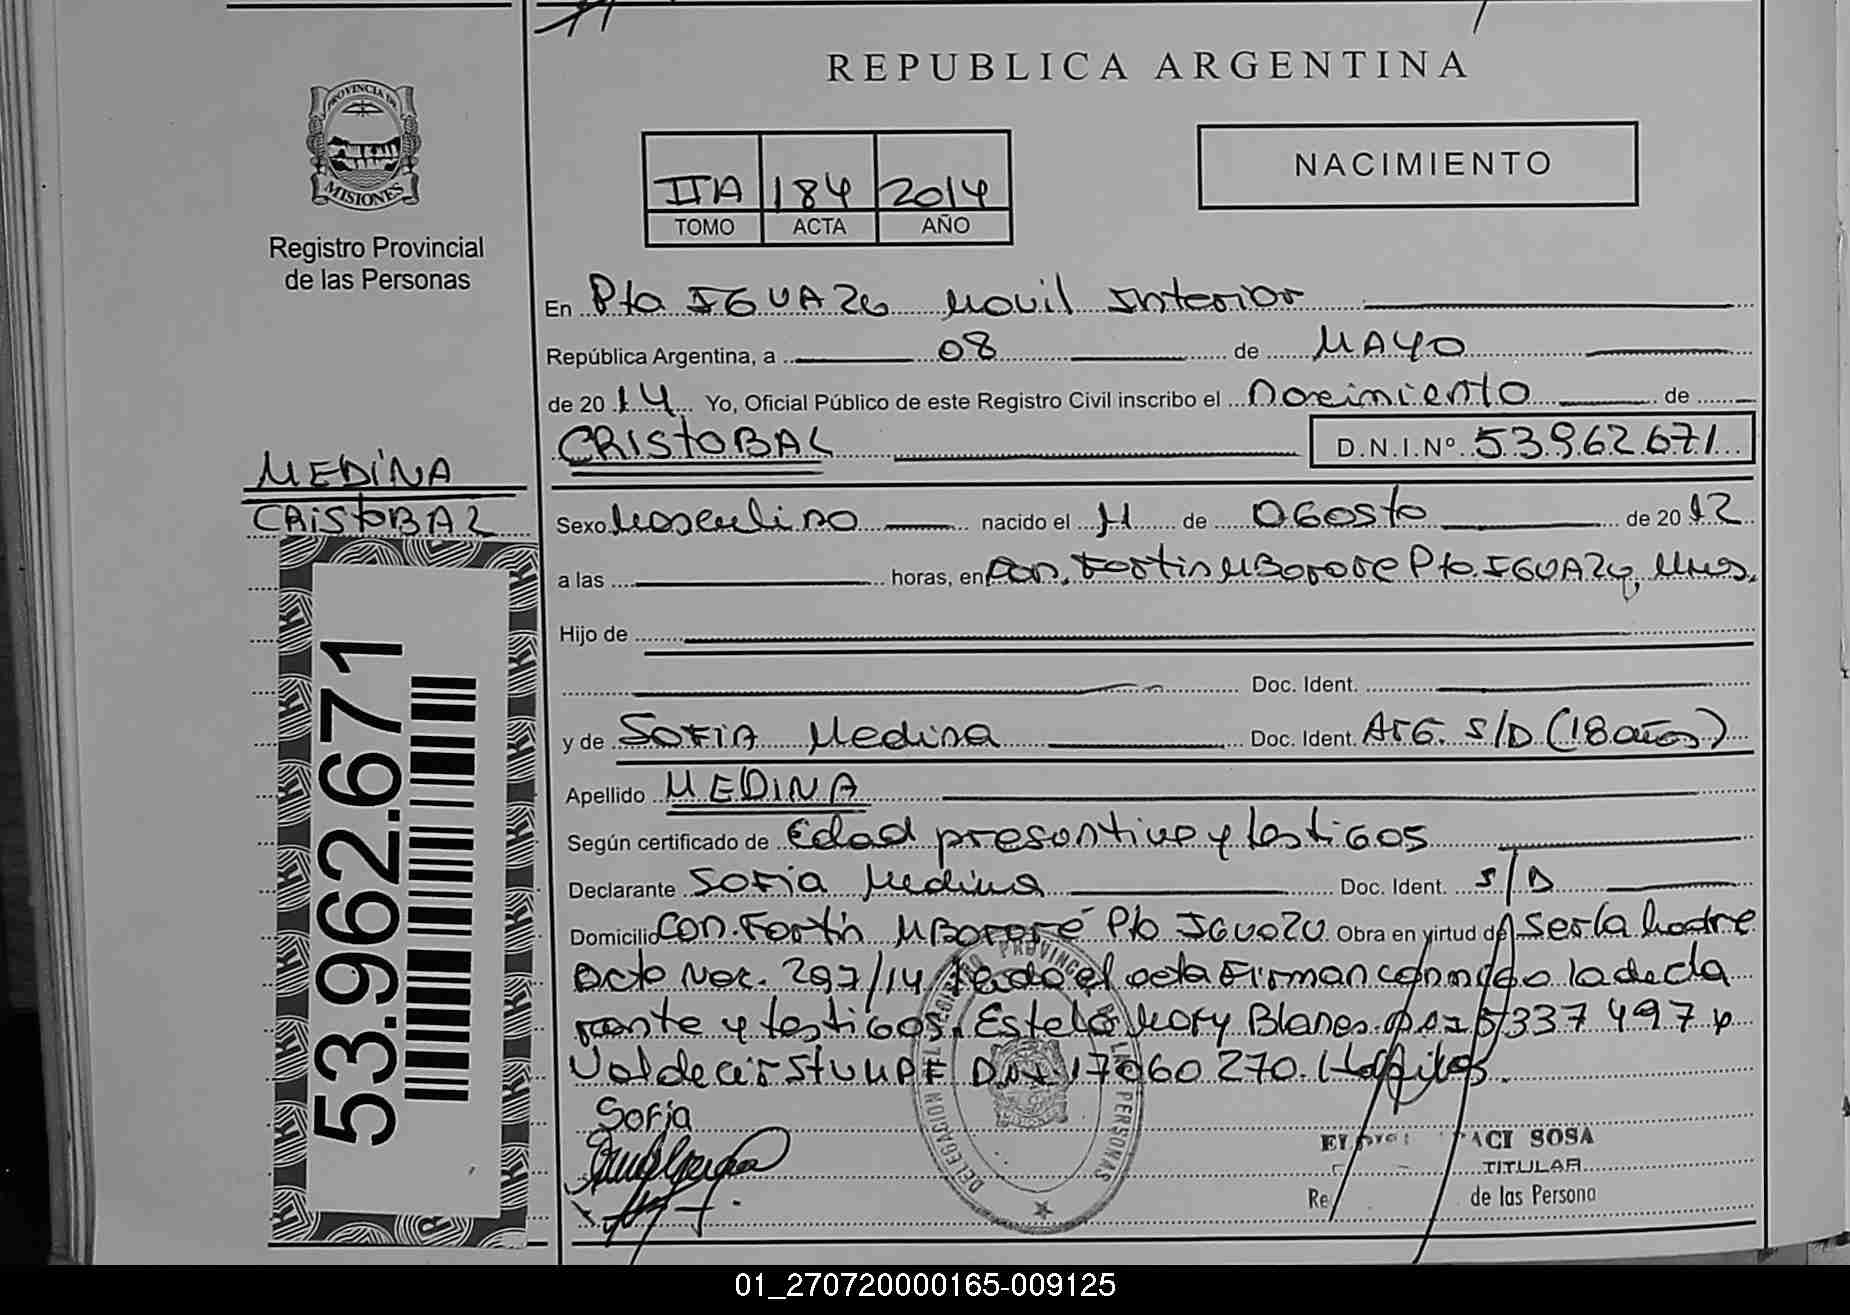 REPUBLICA ARGENTINA
PROVINCIA DE
MISIONES
Registro Provincial
de las Personas
IIA 184 2014
TOMO ACTA AÑO
NACIMIENTO
En Pto IGUAZU Movil Interior
República Argentina, a 08 de MAYO
de 2014 Yo, Oficial Público de este Registro Civil inscribo el nacimiento de
CRISTOBAL D.N.I.Nº 53962671
MEDINA
CRISTOBAL
53.962.671
Sexo Masculino nacido el 11 de agosto de 2012
a las horas, en Con. Fortin MBorore Pto. IGUAZU, Mnes.
Hijo de
Doc. Ident.
y de SOFIA Medina Doc. Ident. ArG. S/D (18 años)
Apellido MEDINA
Según certificado de Edad presuntiva y testigos
Declarante Sofia Medina Doc. Ident. S/D
Domicilio Con. Fortin MBororé Pto IGUAZU Obra en virtud de Ser la Madre
Acta Nac. 297/14 Leida el acta Firman conmigo la decla
rante y testigos. Estela Mary Blanes 337497 y
Valdecir STUMPF DNI 17060270.
Sofia
DELEGACION REGISTRO PROVINCIAL DE LAS PERSONAS
SOSA
TITULAR
de las Persona
01_270720000165-009125